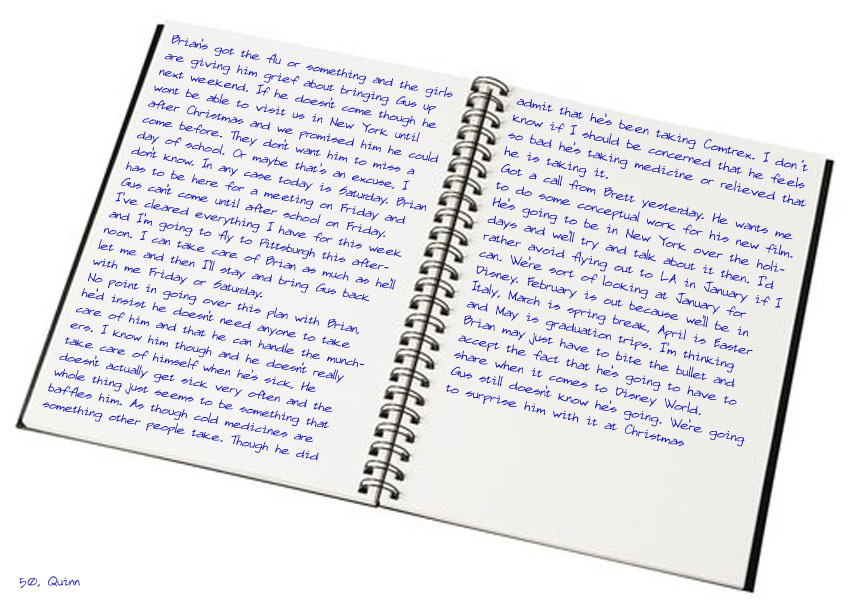 Brian's got the flu or something and the girls
are giving him grief about bringing Gus up
next weekend. If he doesn't come though he
wont be able to visit us in New York until
after Christmas and we promised him he could
come before. They don't want him to miss a
day of school. Or maybe that's an excuse, I
don't know. In any case today is Saturday. Brian
has to be here for a meeting on Friday and
Gus can't come until after school on Friday.
I've cleared everything I have for this week
and I'm going to fly to Pittsburgh this after-
noon. I can take care of Brian as much as he'll
let me and then I'll stay and bring Gus back
with me Friday or Saturday.
No point in going over this plan with Brian,
he'd insist he doesn't need anyone to take
care of him and that he can handle the munch-
ers. I know him though and he doesn't really
take care of himself when he's sick. He
doesn't actually get sick very often and the
whole thing just seems to be something that
baffles him. As though cold medicines are
something other people take. Though he did
admit that he's been taking Comtrex. I don't
know if I should be concerned that he feels
so bad he's taking medicine or relieved that
he is taking it.
Got a call from Brett yesterday. He wants me
to do some conceptual work for his new film.
He's going to be in New York over the holi-
days and we'll try and talk about it then. I'd
rather avoid flying out to LA in January if I
can. We're sort of looking at January for
Disney. February is out because we'll be in
Italy, March is spring break, April is Easter
and May is graduation trips. I'm thinking
Brian may just have to bite the bullet and
accept the fact that he's going to have to
share when it comes to Disney World.
Gus still doesn't know he's going. We're going
to surprise him with it at Christmas
50, Quinn